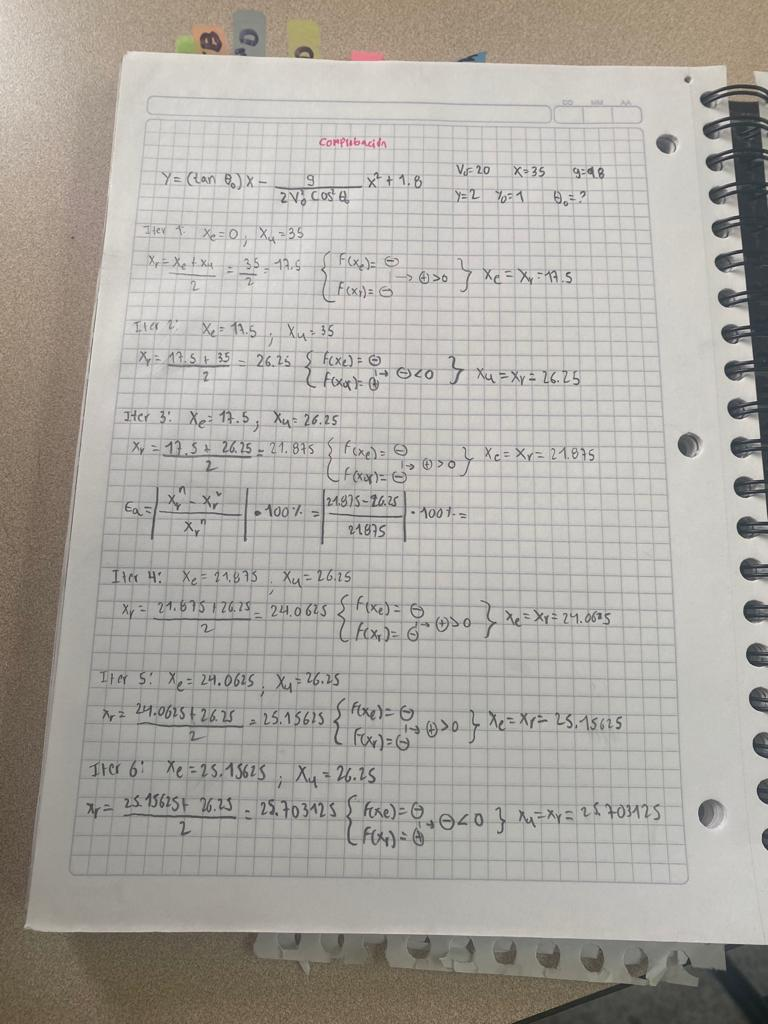 B
D
D
DD MM AA
Computación
Y = (tan θ₀) X − g / 2V₀² cos² θ₀ x² + 1.8 V₀=20 X=35 g=9.8
Y=2 Y₀=1 θ₀=?
Iter 1: Xe=0 ; Xu=35
Xr = Xe + Xu / 2 = 35 / 2 = 17.5 { F(xe) = ⊖ F(xr) = ⊖ → ⊕>0 } Xe = Xr = 17.5
Iter 2: Xe = 17.5 ; Xu = 35
Xr = 17.5 + 35 / 2 = 26.25 { F(xe) = ⊖ F(xr) = ⊕ → ⊖<0 } Xu = Xr = 26.25
Iter 3: Xe = 17.5 ; Xu = 26.25
Xr = 17.5 + 26.25 / 2 = 21.875 { F(xe) = ⊖ F(xr) = ⊖ → ⊕>0 } Xe = Xr = 21.875
Ea = | Xrⁿ − Xrᵛ / Xrⁿ | • 100% = | 21.875 − 26.25 / 21.875 | • 100% =
Iter 4: Xe = 21.875 ; Xu = 26.25
Xr = 21.875 + 26.25 / 2 = 24.0625 { F(xe) = ⊖ F(xr) = ⊖ → ⊕>0 } Xe = Xr = 24.0625
Iter 5: Xe = 24.0625 ; Xu = 26.25
Xr = 24.0625 + 26.25 / 2 = 25.15625 { F(xe) = ⊖ F(xr) = ⊖ → ⊕>0 } Xe = Xr = 25.15625
Iter 6: Xe = 25.15625 ; Xu = 26.25
Xr = 25.15625 + 26.25 / 2 = 25.703125 { F(xe) = ⊖ F(xr) = ⊕ → ⊖<0 } Xu = Xr = 25.703125